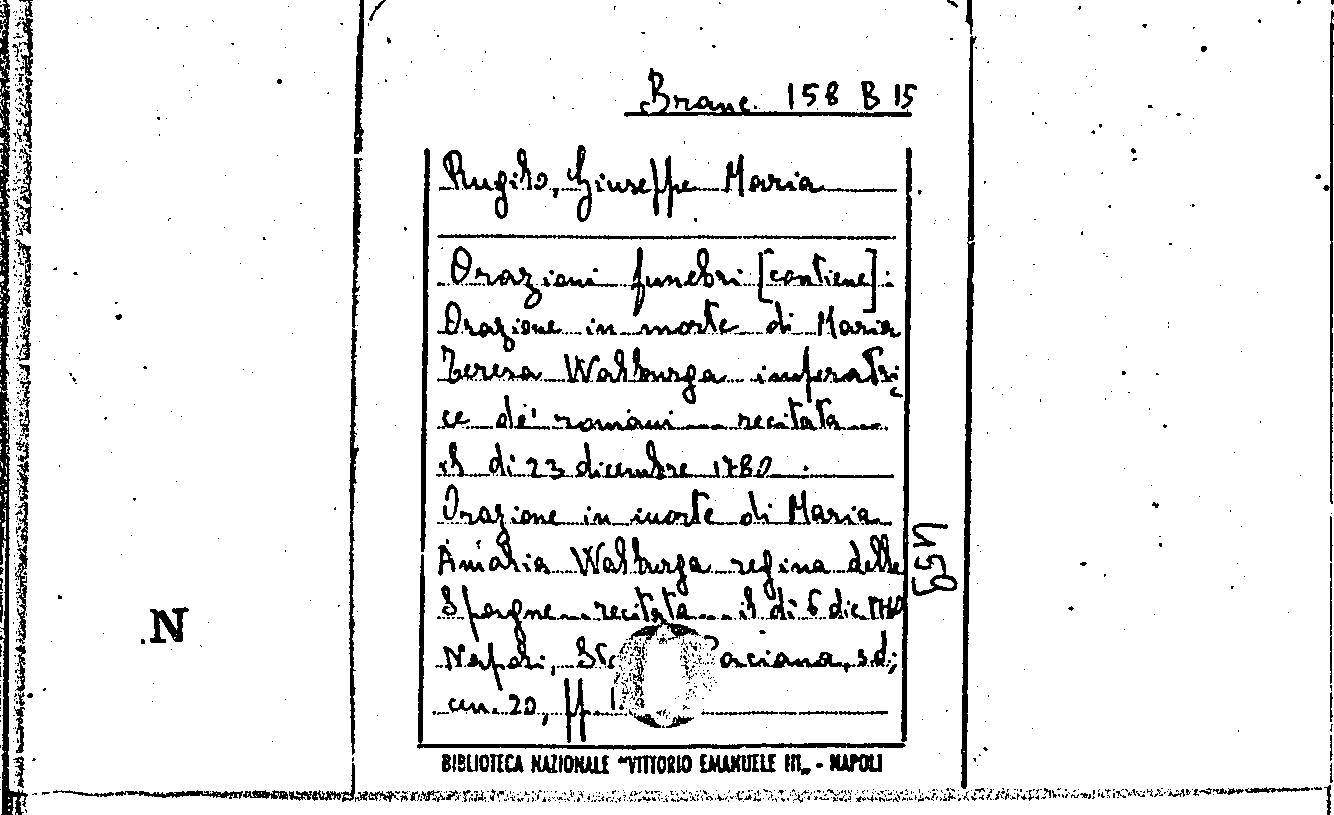 Branc. 158 B 15
Rugilo, Giuseppe Maria
Orazioni funebri [contiene]:
Orazione in morte di Maria
Teresa Walburga imperatri
ce de' romani ... recitata ...
il dì 23 dicembre 1780.
Orazione in morte di Maria
Amalia Walburga regina delle
Spagne ... recitata ... il dì 6 dic. 1760
Napoli, s.d.;
cm. 20, pp.
459
N
BIBLIOTECA NAZIONALE "VITTORIO EMANUELE III„ - NAPOLI